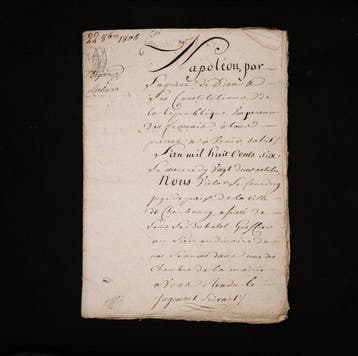 22 8bre 1806
Napoléon, par
la grâce de Dieu &
Les Constitutions de
la République, Empereur
des français, à tous
présens & à Venir, Salut,
L'an mil huit Cents Six
Le mercredy Vingt deux octobre
Nous Victor Le
juge de paix de la Ville
de Cherbourg, assisté de
Greffier
au lieu ordinaire de
nos Séances dans une des
Chambre de la mairie
avons Rendu le
jugement Suivant